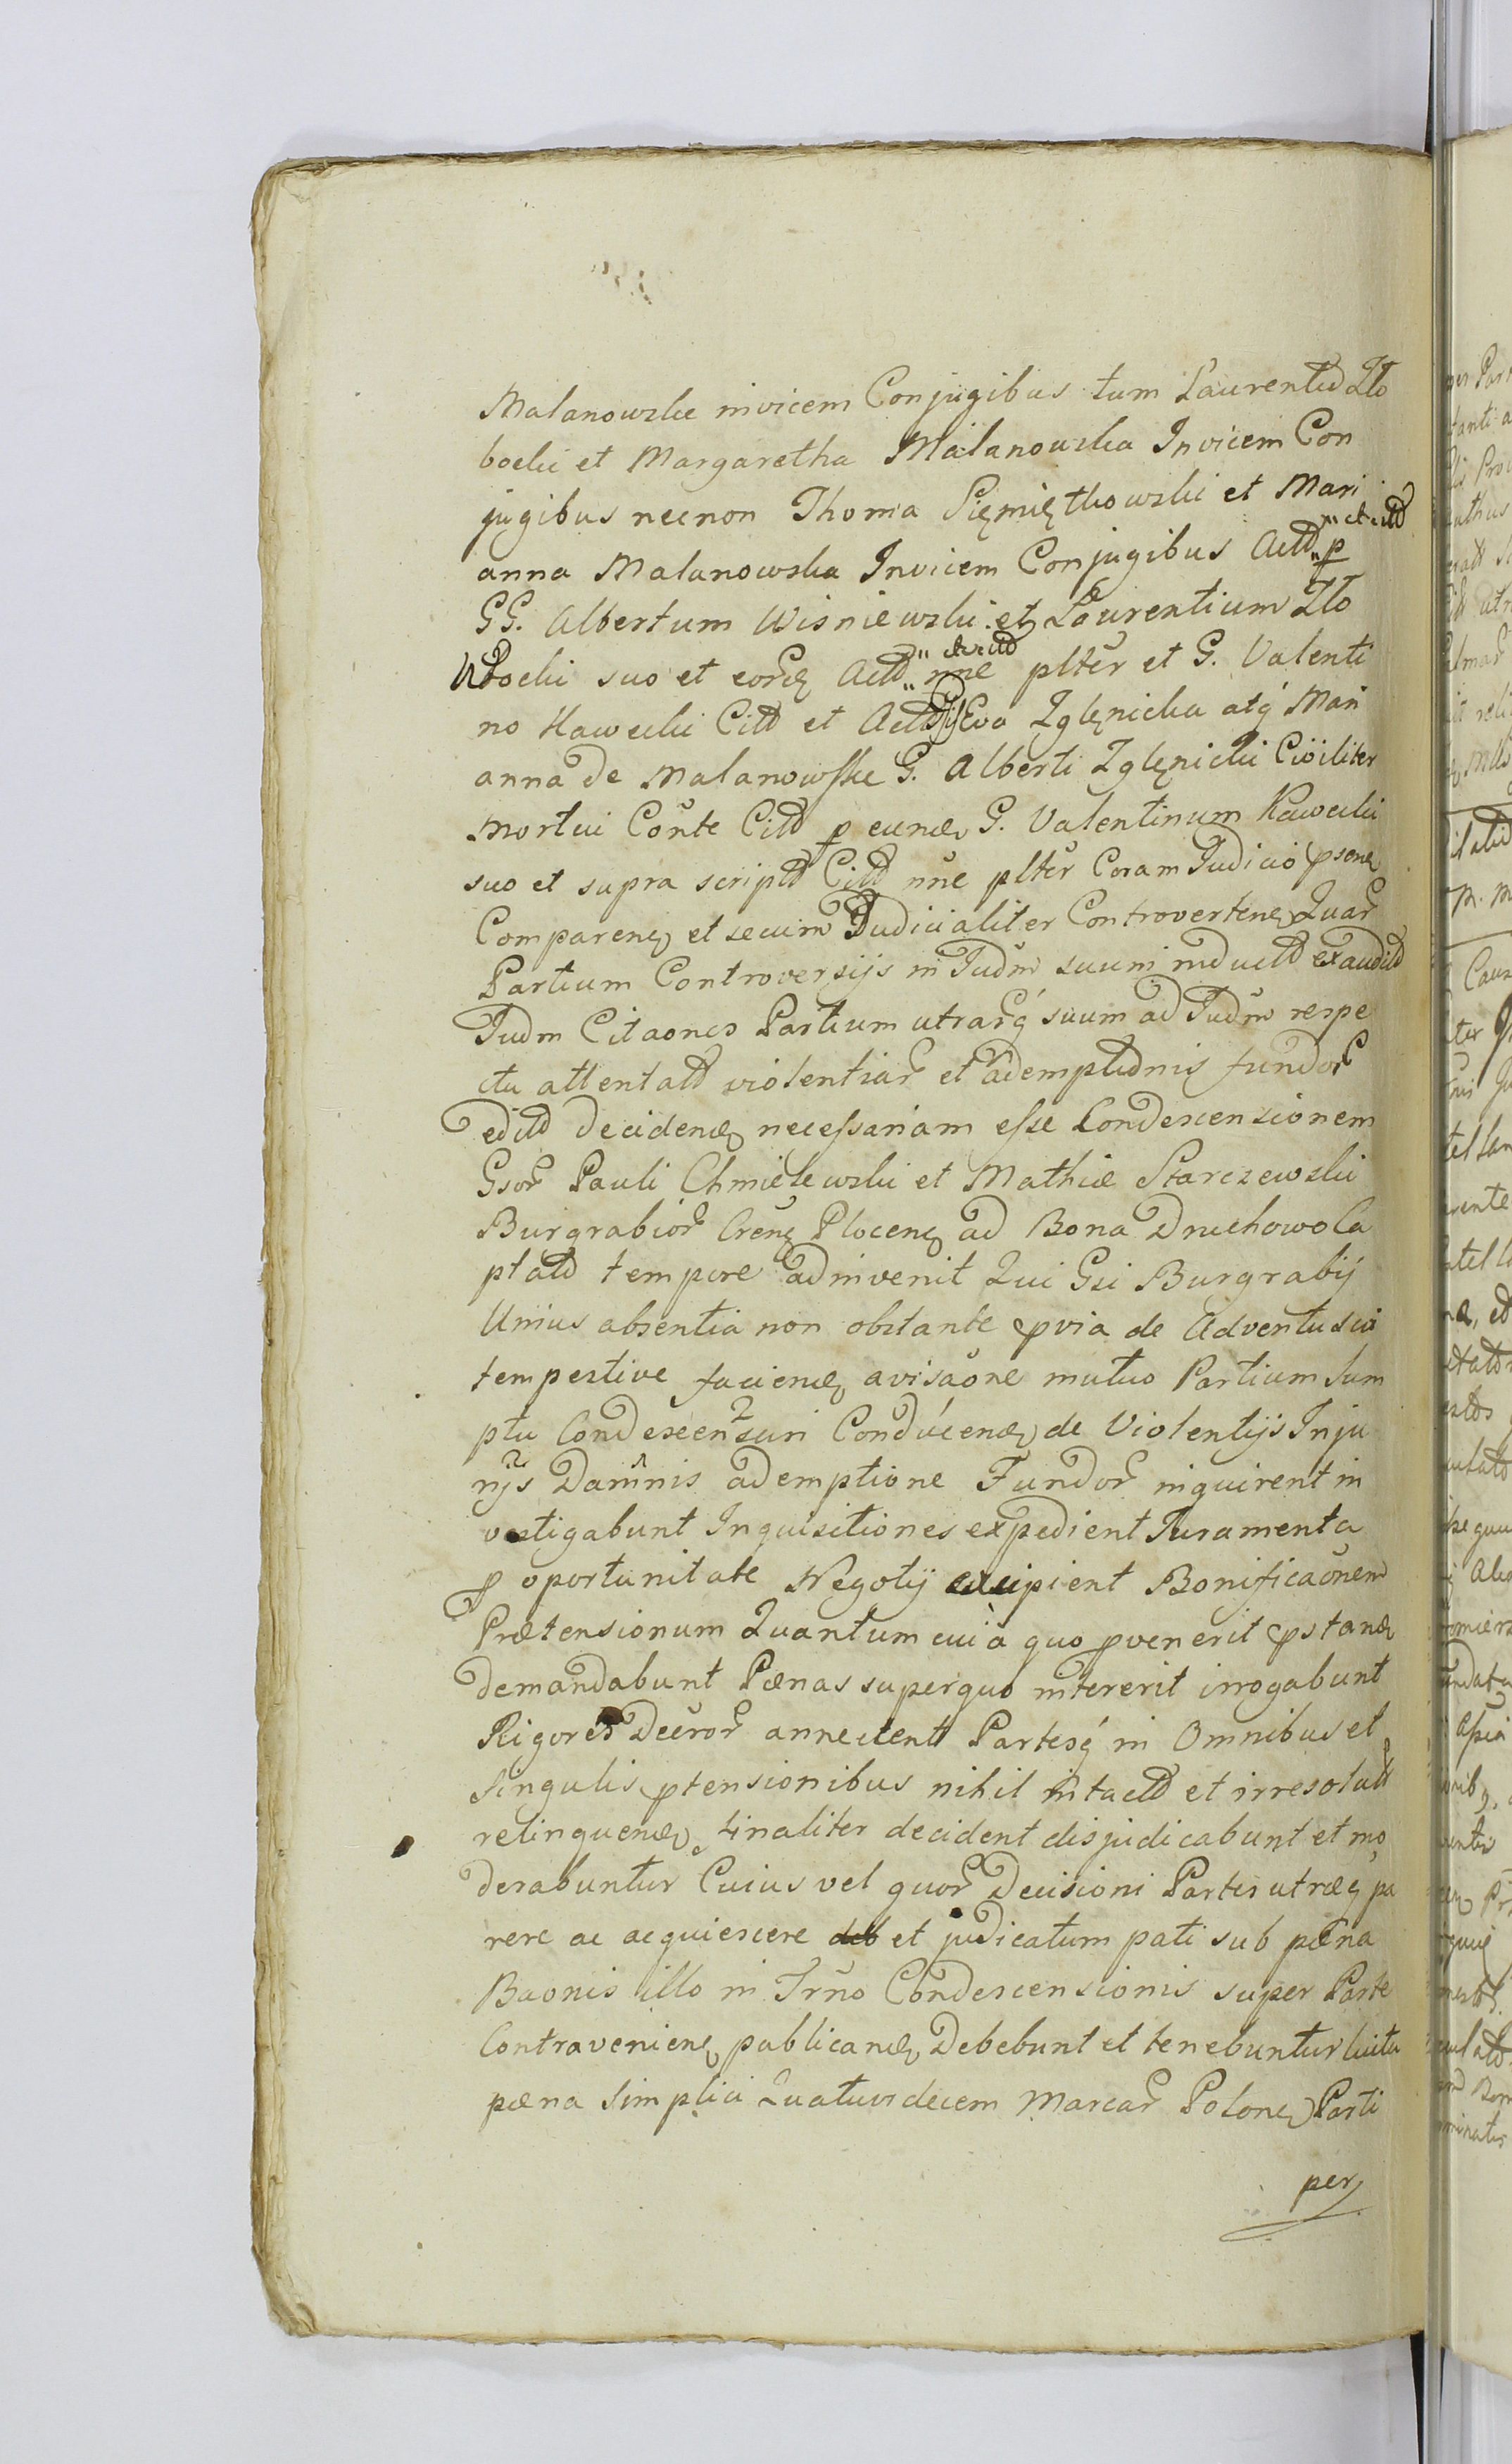 Malanowskie invicem Conjugibus tum Laurentio Zło
bocki et Margaretha Malanowska Invicem Con
jugibus necnon Thoma Pięmiętkowski et Mari
anna Malanowska Invicem Conjugibus Actt " et citt p
GG. Albertum Wisniewski et Laurentium Zło
bocki suo et eorū Actt " et citt nñe pltēr et G. Valenti
no Kawecki Citt et Actt Eva Zglęnicka atq́ Mari
anna de Malanowskie G. Alberti Zglęnicki Civiliter
Mortui Cōnte Citt p eund G. Valentinum Kawecki
suo et supra script Citt nñe pltēr Coram Judicio psone
Comparen et secum Judicialiter Controverten Quar
Partium Controversijs in Judm suum induct exaudit
Judm Citaones Partium utrarq́ suum ad Judm respe
ctu attentatt violentiar et ademptionis fundor
edit decidend necessariam esse Condescensionem
Gsor Pauli Chmielewski et Mathiæ Starczewski
Burgrabior Cren Plocen ad Bona Druchowo Ca
ptatt tempore adinvenit Qui Gsi Burgrabij
Unius absentia non obstante pvia de Adventu sui
tempestive faciend avisaōne mutuo Partium Sum
ptu Condescensuri Conducend de Violentijs Inju
rijs Damnis ademptione Fundor inquirent in
vestigabunt Inquisitiones expedient Juramenta
p oportunitate Negotij excipient Bonificaōnem
Prætensionum Quantum cui à quo pvenerit pstand
demandabunt Pænas super quo intererit irrogabunt
Rigores Decror annectent Partesq́ in Omnibus et
Singulis ptensionibus nihil intactt et irresolutt
relinquend finaliter decident disjudicabunt et mo
derabuntur Cuius vel quor Decisioni Partes utræq pa
rere ac acquiescere deb et judicatum pati sub pæna
Baonis illo in Trno Condescensionis super Parte
Contravenien publicand Debebunt et tenebuntur luitu
pæna Simplici Quatuordecem Marcar Polon Parti
per